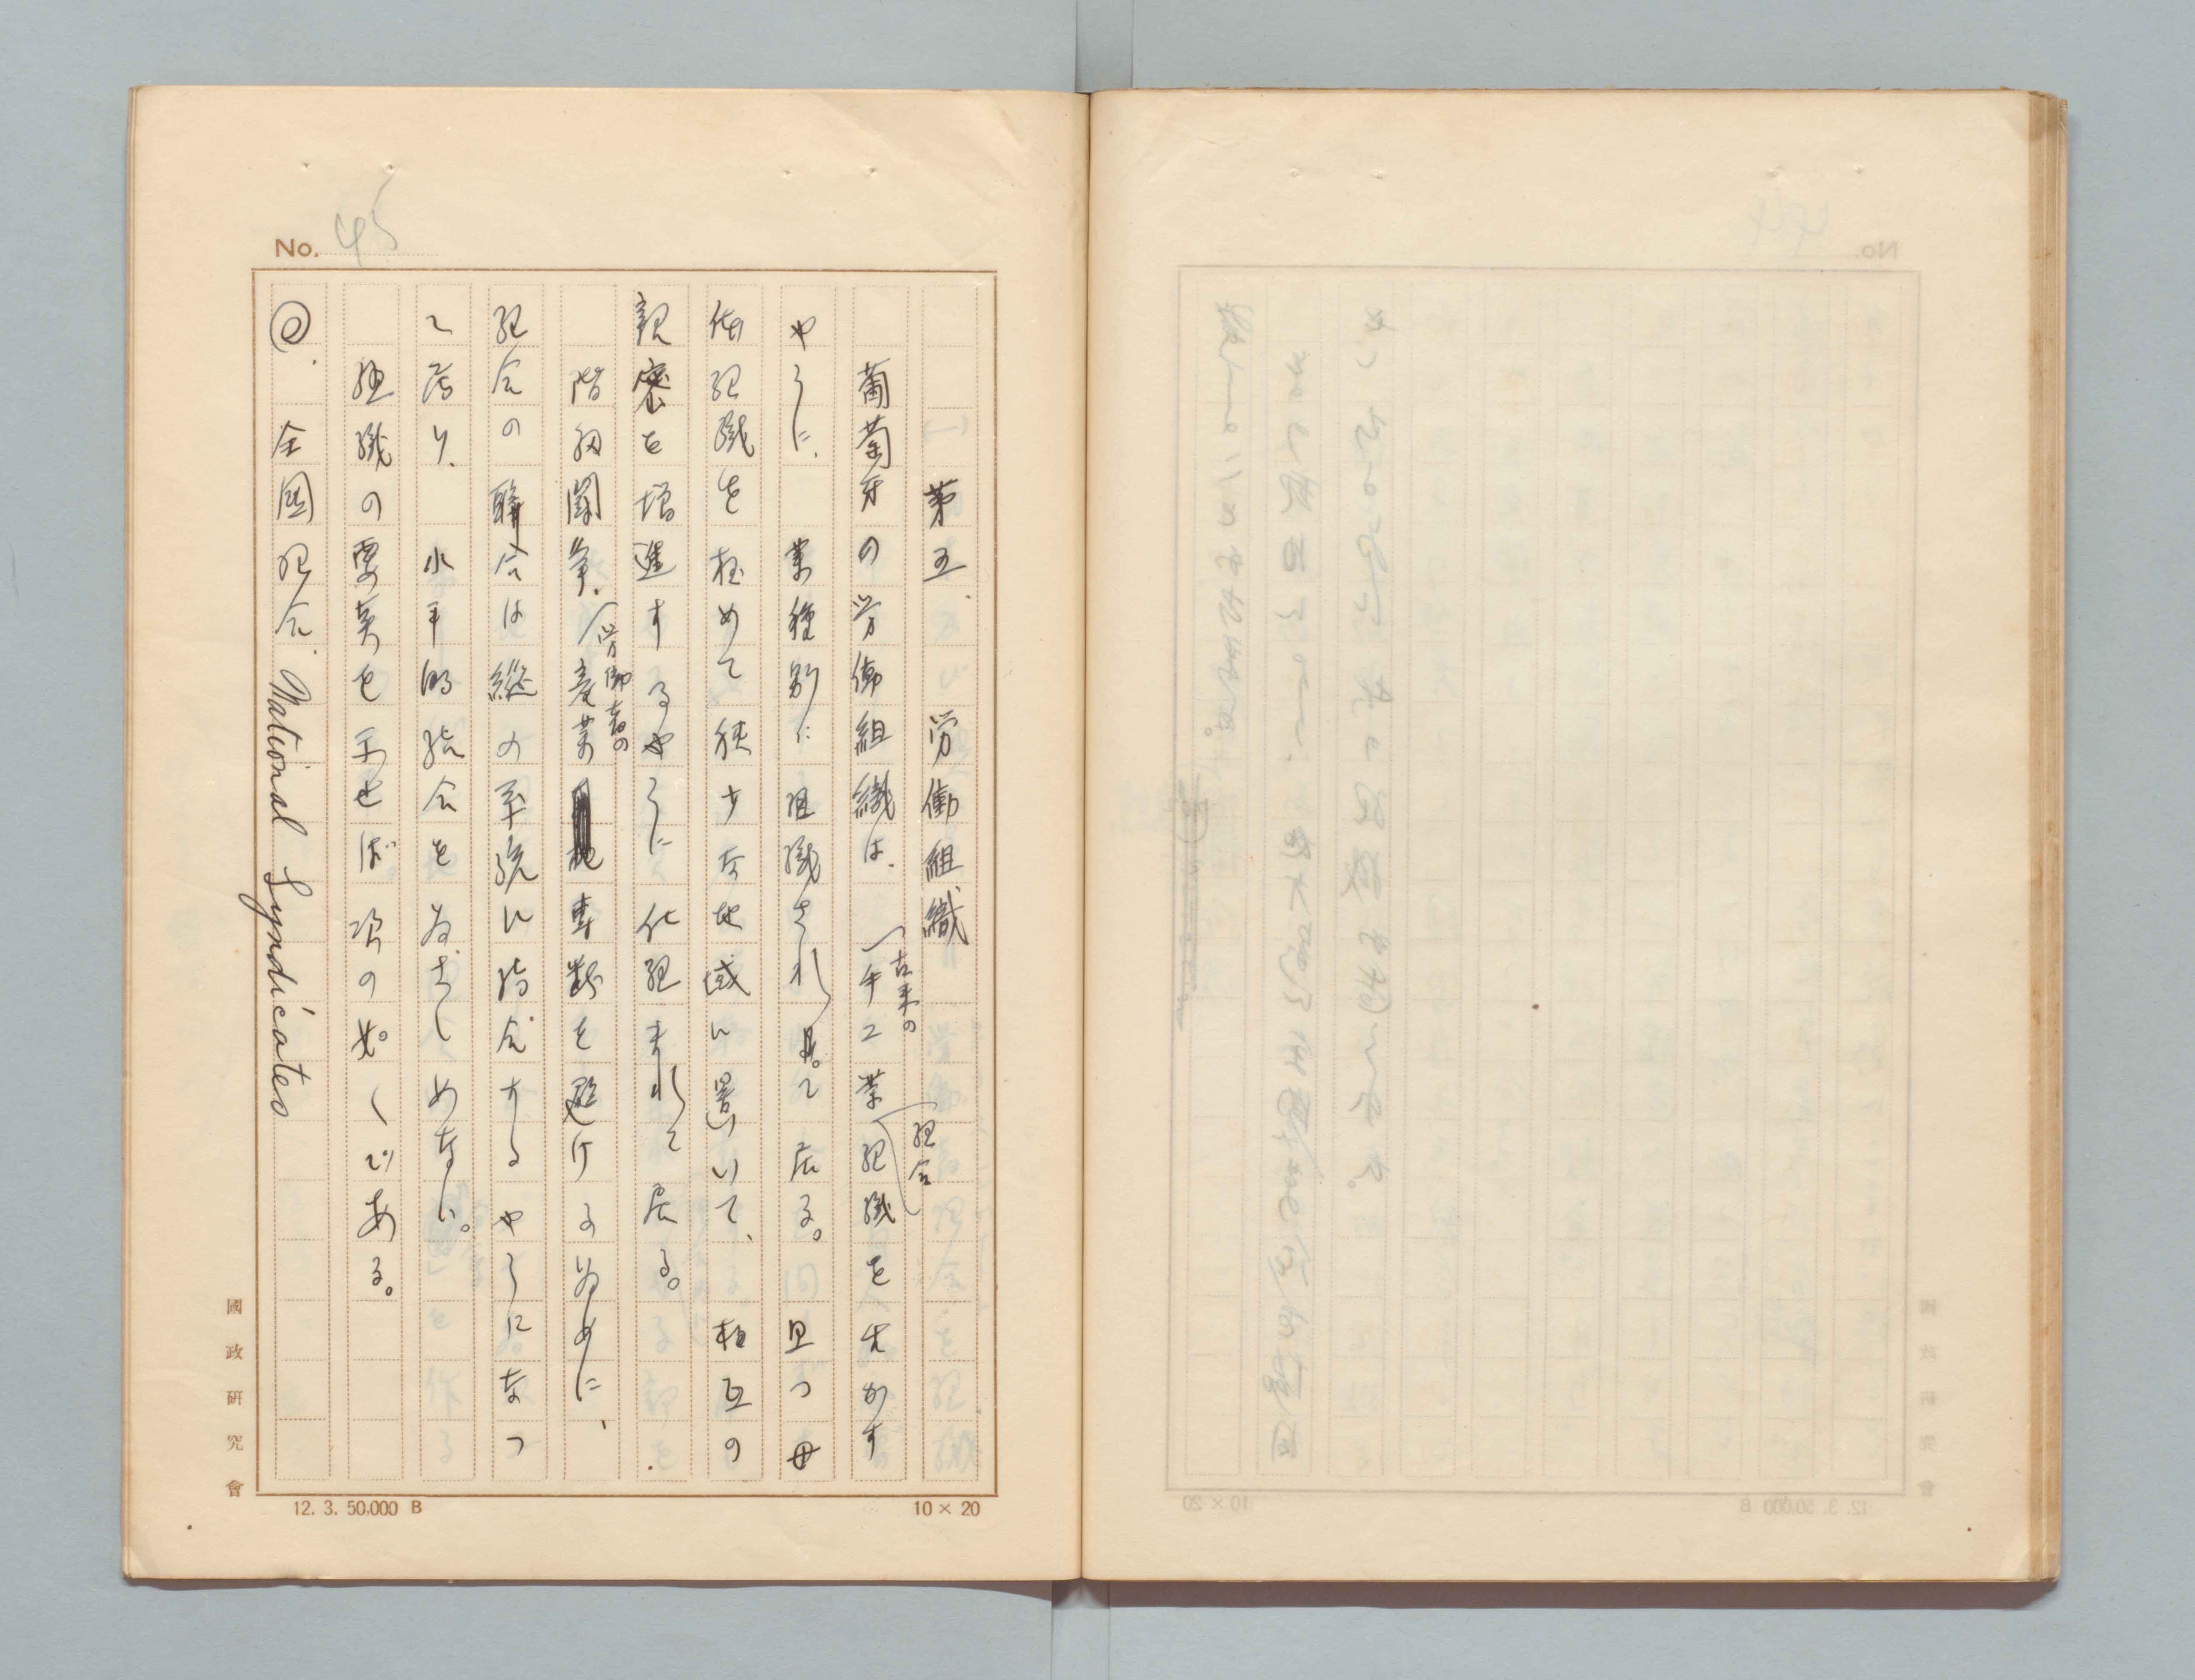 No. 45
第五、労働組織
葡萄牙の労働組織は、古来の手工業組合組織を生かす
やうに、業種別に組織されて居る。且つ毋
体組織を極めて狭少な地域に置いて、相互の
親密を増進するやうに仕組まれて居る。
階級闘争、労働者の産業専断を避けるために、
組合の聯合は縦の系統に結合するやうになつ
て居り、水平的結合を為さしめない。
組織の要英を示せば、次の如くである。
@. 全國組合. National Syndicates
國政研究會
12. 3. 50,000 B
10×20